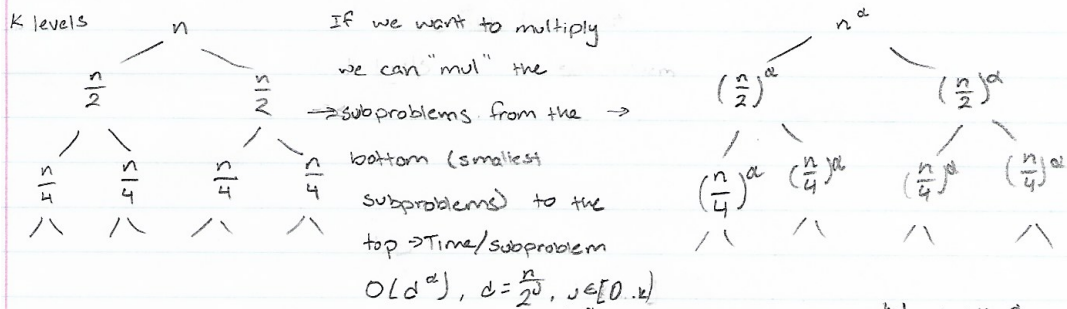 K levels
n
n/2 n/2
n/4 n/4 n/4 n/4
If we want to multiply
we can "mul" the
→ subproblems from the →
bottom (smallest
subproblems) to the
top → Time/subproblem
O(d^α), d = n/2^j, j ∈ [0..k]
n^α
(n/2)^α (n/2)^α
(n/4)^α (n/4)^α (n/4)^α (n/4)^α